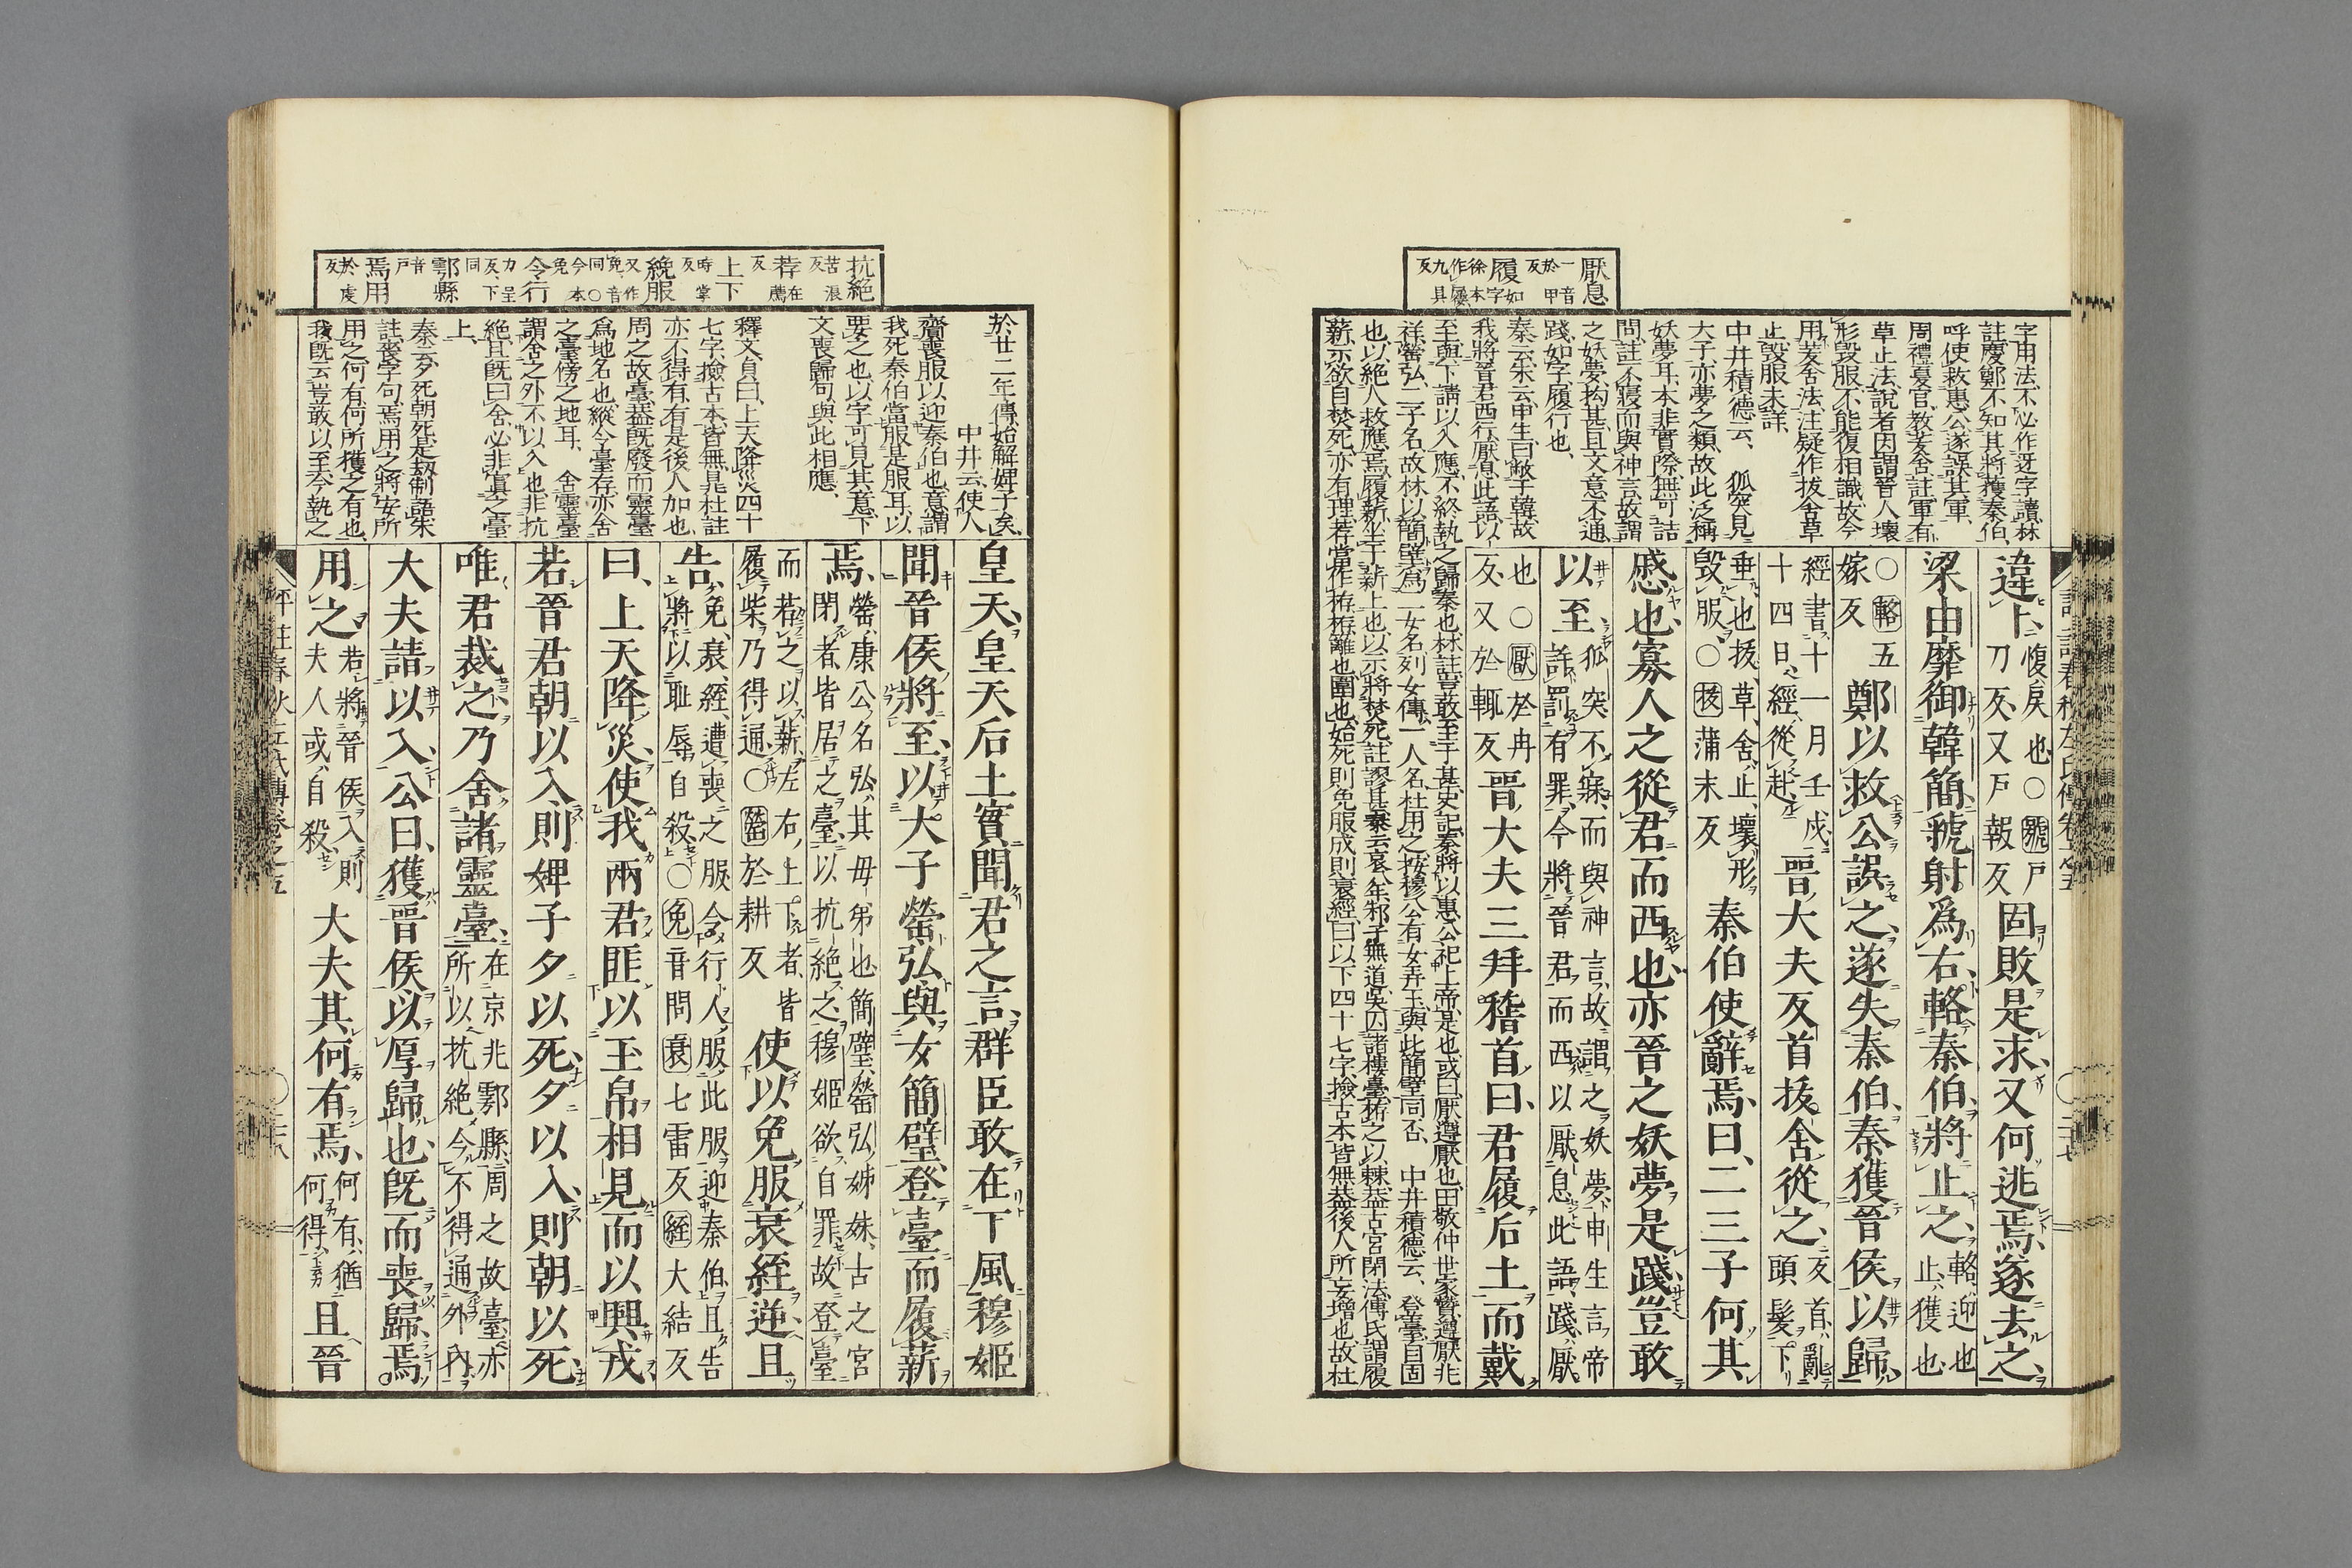 厭息 於甲反 一音 履 如字 徐本作屨 九具反
字用法不必作迓字讀林
註慶鄭不知其將獲秦伯、
呼使救惠公遂誤其軍、
周禮夏官教茇舍註軍有
草止法說者因謂晉人壞
形毀服不能復相識故今
用茇舍法注疑作拔舍草
止毀服未詳、
中井積德云、 狐突見
大子亦夢之類故此泛稱
妖夢耳本非實際無可詰
問註不寐而與神言故謂
之妖夢拘甚且文意不通、
踐如字履行也、
秦云朱云申生曰敝于韓故
我將晉君西行厭息此語以
至與下請以入應不終執之歸秦也林註豈敢至于甚史記秦將以惠公祀上帝是也或曰厭遵厭也田敬仲世家贊遵厭兆
祥罃弘二子名故林以簡璧爲一女名列女傳一人名杜用之按穆公有女弄玉與此簡璧同否、 中井積德云、登臺自固
也以絕人救應焉履薪坐于薪上也以示將焚死註謬甚秦云哀八年邾子無道吳囚諸樓臺栫之以棘蓋古宮閉法傅氏謂履
薪示欲自焚死亦有理荐當作栫栫籬也圍也始死則免服成則衰絰曰以下四十七字撿古本皆無蓋後人所妄增也故杜
違卜、愎戾也○號戶刀反、又戶報反 固敗是求、又何逃焉、遂去之、
梁由靡御韓簡、虢射爲右、輅秦伯、將止之、輅、迎也止、獲也
○輅五嫁反 鄭以救公誤之、遂失秦伯、秦獲晉侯以歸、
經書十一月壬戌十四日、經從赴、 晉大夫反首拔舍從之、反首、亂頭髮下
垂也拔、草舍止、壞形毀服、○拔蒲末反 秦伯使辭焉、曰、二三子何其
慼也、寡人之從君而西也、亦晉之妖夢是踐、豈敢
以至、狐突不寐、而與神言、故謂之妖夢、申生言帝許罰有罪、今將晉君而西、以厭息此語、踐、厭
也○厭於冉反、又於輒反 晉大夫三拜稽首曰、君履后土而戴
評註春秋左氏傳卷之五 二十七
抗絕 苦浪反 荐 在薦反 上下 時掌反 絻服 音免、又作免同○今本免 令行 力呈反、下同 鄠縣 音戶 焉用 於虔反
於廿二年傳始解婢子矣、
中井云使人
齎喪服以迎秦伯也意謂
我死秦伯當服是服耳以
要之也以字可見其意下
文喪歸句與此相應、
釋文自曰上天降災四十
七字撿古本皆無是杜註
亦不得有有是後人加也
周之故臺蓋既廢而靈臺
爲地名也縱今臺存亦舍
之臺傍之地耳、 舍靈臺
謂舍之外不以入也非抗
絕且既曰舍必非寘之臺
上、
秦云夕死朝死是劫制語朱
註喪字句焉用之將安所
用之何有何所獲之有也
我既云豈敢以至今執之
皇天、皇天后土實聞君之言、群臣敢在下風、穆姬
聞晉侯將至、以大子罃弘與女簡璧登臺而履薪
焉、罃、康公名弘、其母弟也簡璧、罃弘姊妹、古之宮閉者、皆居之臺、以抗絕之、穆姬欲自罪、故登臺
而荐之以薪、左右上下者、皆履柴乃得通、○罃於耕反 使以免服衰絰逆、且
告、免、衰、絰、遭喪之服、令行人服此服迎秦伯、且告將以恥辱自殺、○免音問衰七雷反絰大結反
曰、上天降災、使我兩君匪以玉帛相見、而以興戎、
若晉君朝以入、則婢子夕以死、夕以入、則朝以死、
唯君裁之、乃舍諸靈臺、在京兆鄠縣、周之故臺、亦所以抗絕今不得通外內、
大夫請以入、公曰、獲晉侯以厚歸也、既而喪歸、焉
用之、若將晉侯入、則夫人或自殺、 大夫其何有焉、何有、猶何得、 且晉
評註春秋左氏傳卷之五 二十八